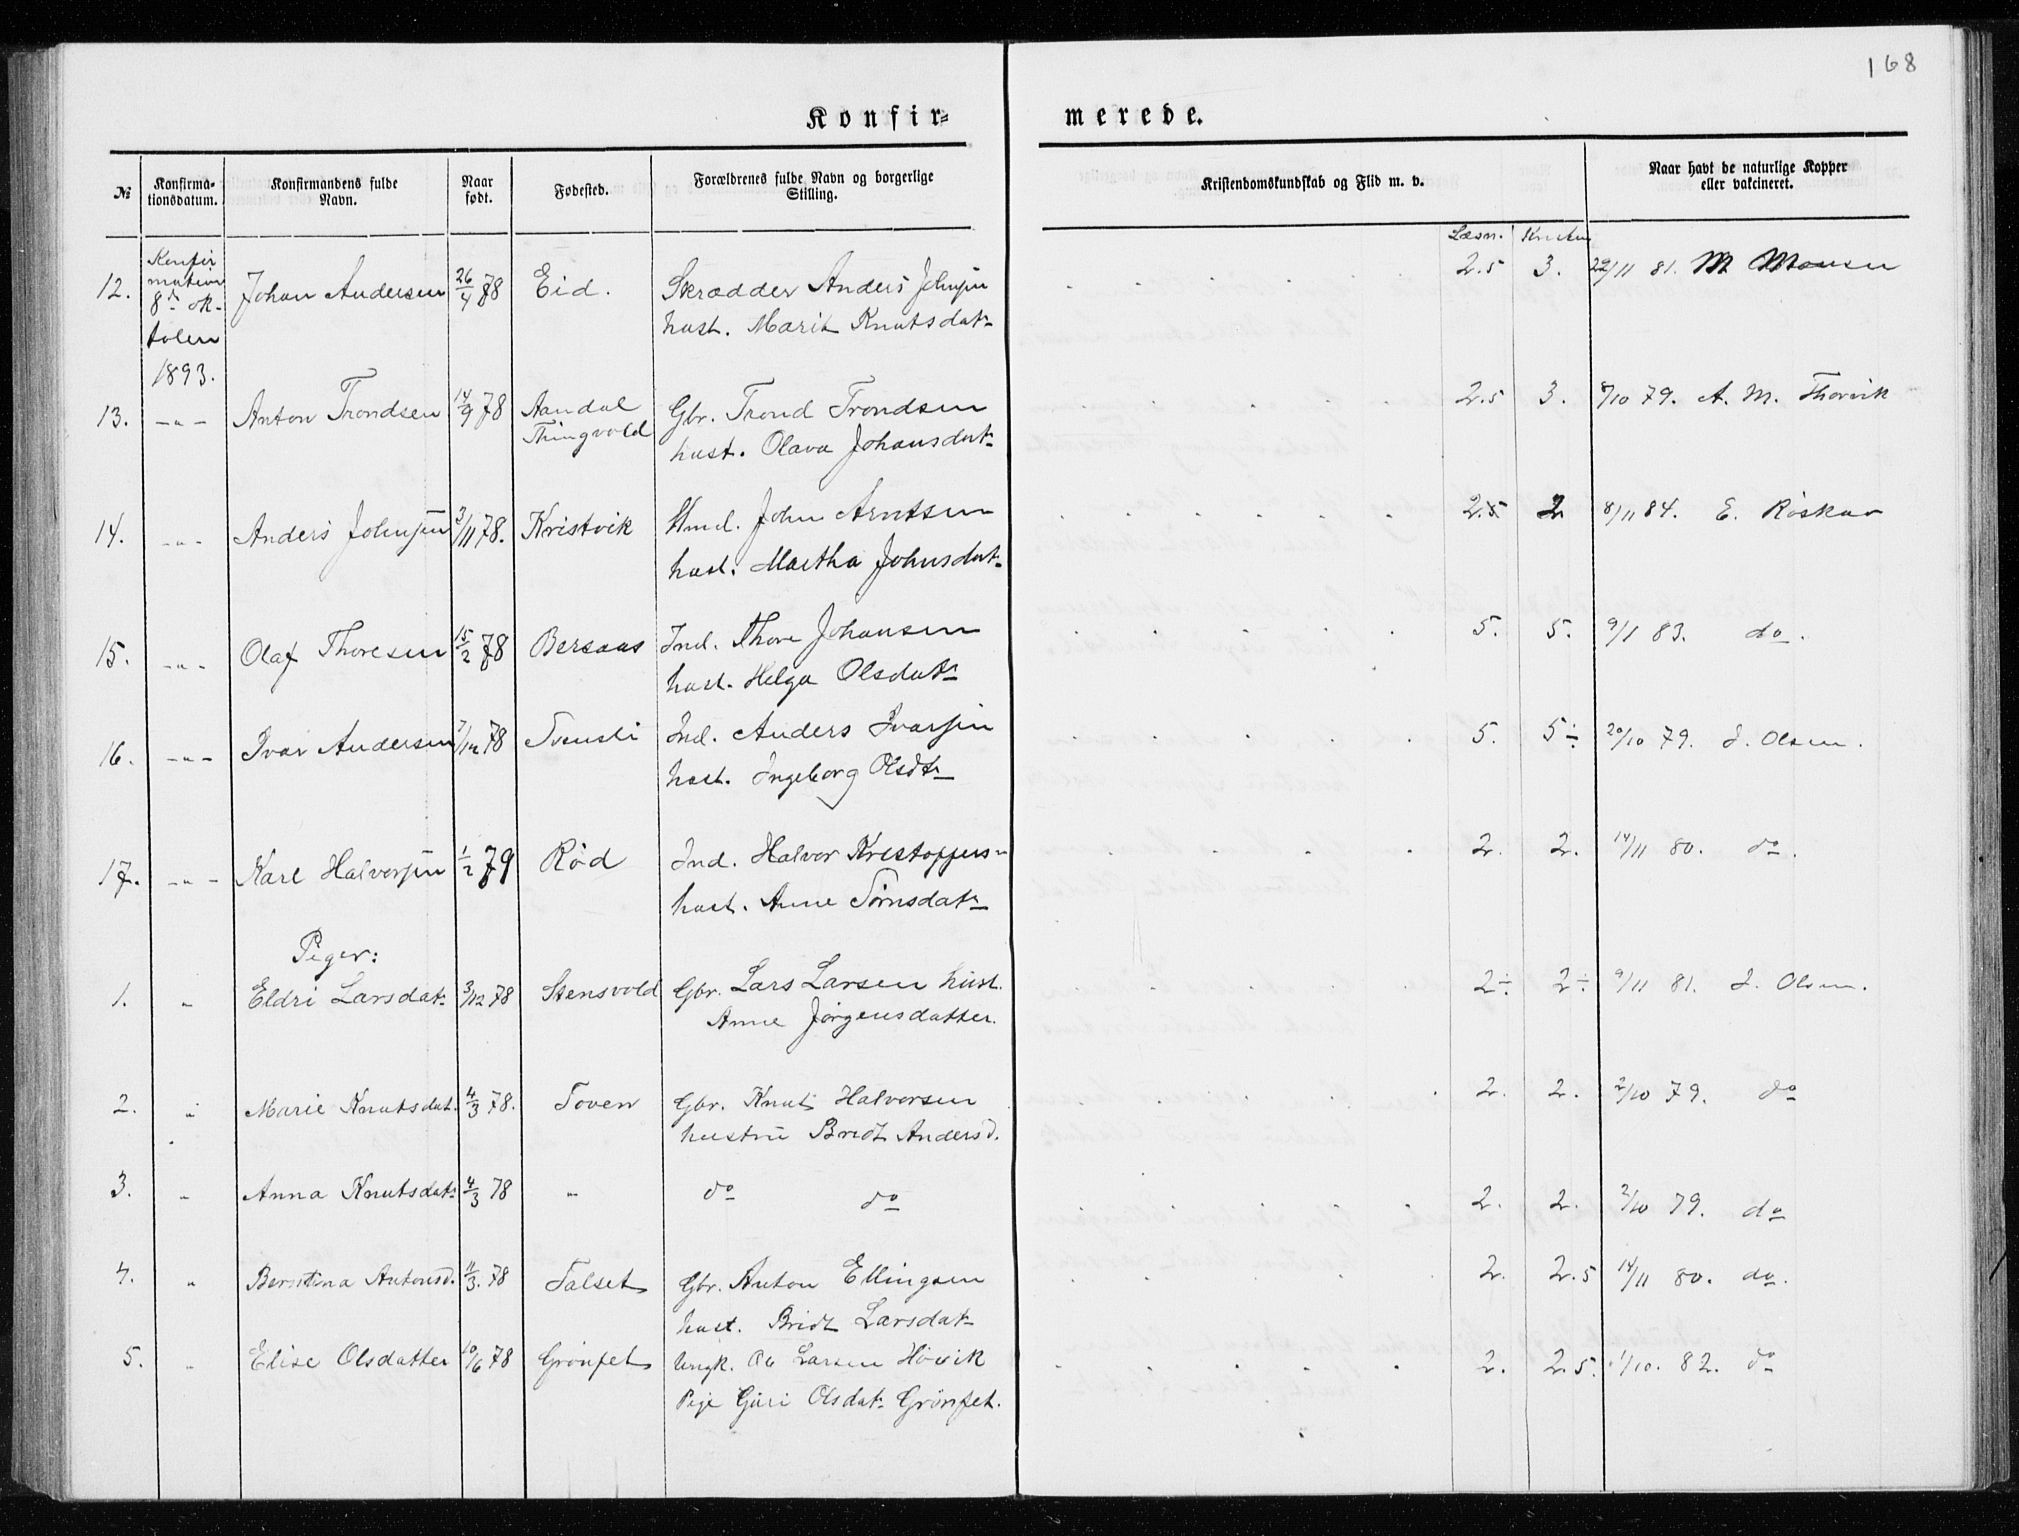 168
Konfir-
merede.
№
Konfirma-
tionsdatum.
Konfirmandens fulde
Navn.
Naar
født.
Fødested.
Forældrenes fulde Navn og borgerlige
Stilling.
Kristendomskundskab og Flid m. v.
Naar havt de naturlige Kopper
eller vakcineret.
Læsn. Kristen
12. Konfir Johan Andersen 26/4 78 Eid. Skrædder Anders Johnsen 2.5 3. 22/11 81. M
mation
8de ok- hust. Marit Knutsdatr
tober
1893.
13. -"- Anton Trondsen 14/9 78 Aandal Gbr. Trond Trondsen 2.5 3. 8/10 79. A. M. Thorvik
Thingvold hust. Olava Johansdatr
14. -"- Anders Johnsen 3/11 78. Kristvik John Arntsen 2.5 2 8/11 84. E. Røskar
hust. Martha Johnsdatr
15. -"- Olaf Thoresen 15/2 78 Bersaas Ind. Thore Johansen 5. 5. 9/1 83. do.
hust. Helga Olsdatr
16. -"- Ivar Andersen 7/12 78 Svensli Ind. Anders Ivarsen 5. 5÷. 20/10 79. J. Olsen.
hust. Ingeborg Olsdtr
17. -"- Karl Halvorsen 1/2 79 Rød Ind. Halvor Kristoffers- 2. 2. 14/11 80. do.
hust. Anne Tørnsdatr
Piger:
1. " Eldri Larsdatr 3/12 78 Stensvold Gbr. Lars Larsen hust. 2÷. 2÷. 9/11 81. J. Olsen.
Anne Jørgensdatter.
2. " Marie Knutsdat. 4/3 78. Toven Gbr. Knut Halvorsen 2. 2. 2/10 79. do
hustru Bridt Andersd.
3. " Anna Knutsdatr 4/3 78 " do do 2. 2. 2/10 79. do
4. " Berntina Antonsd. 11/3. 78 Talset Gbr. Anton Ellingsen 2. 2.5 14/11 80. do.
hust. Bridt Larsdatr
5. " Elise Olsdatter 10/6 78 Grønset Ungk. Ole Larsen Høvik 2. 2.5. 1/10. 82. do
Pige Guri Olsdatr Grønset.